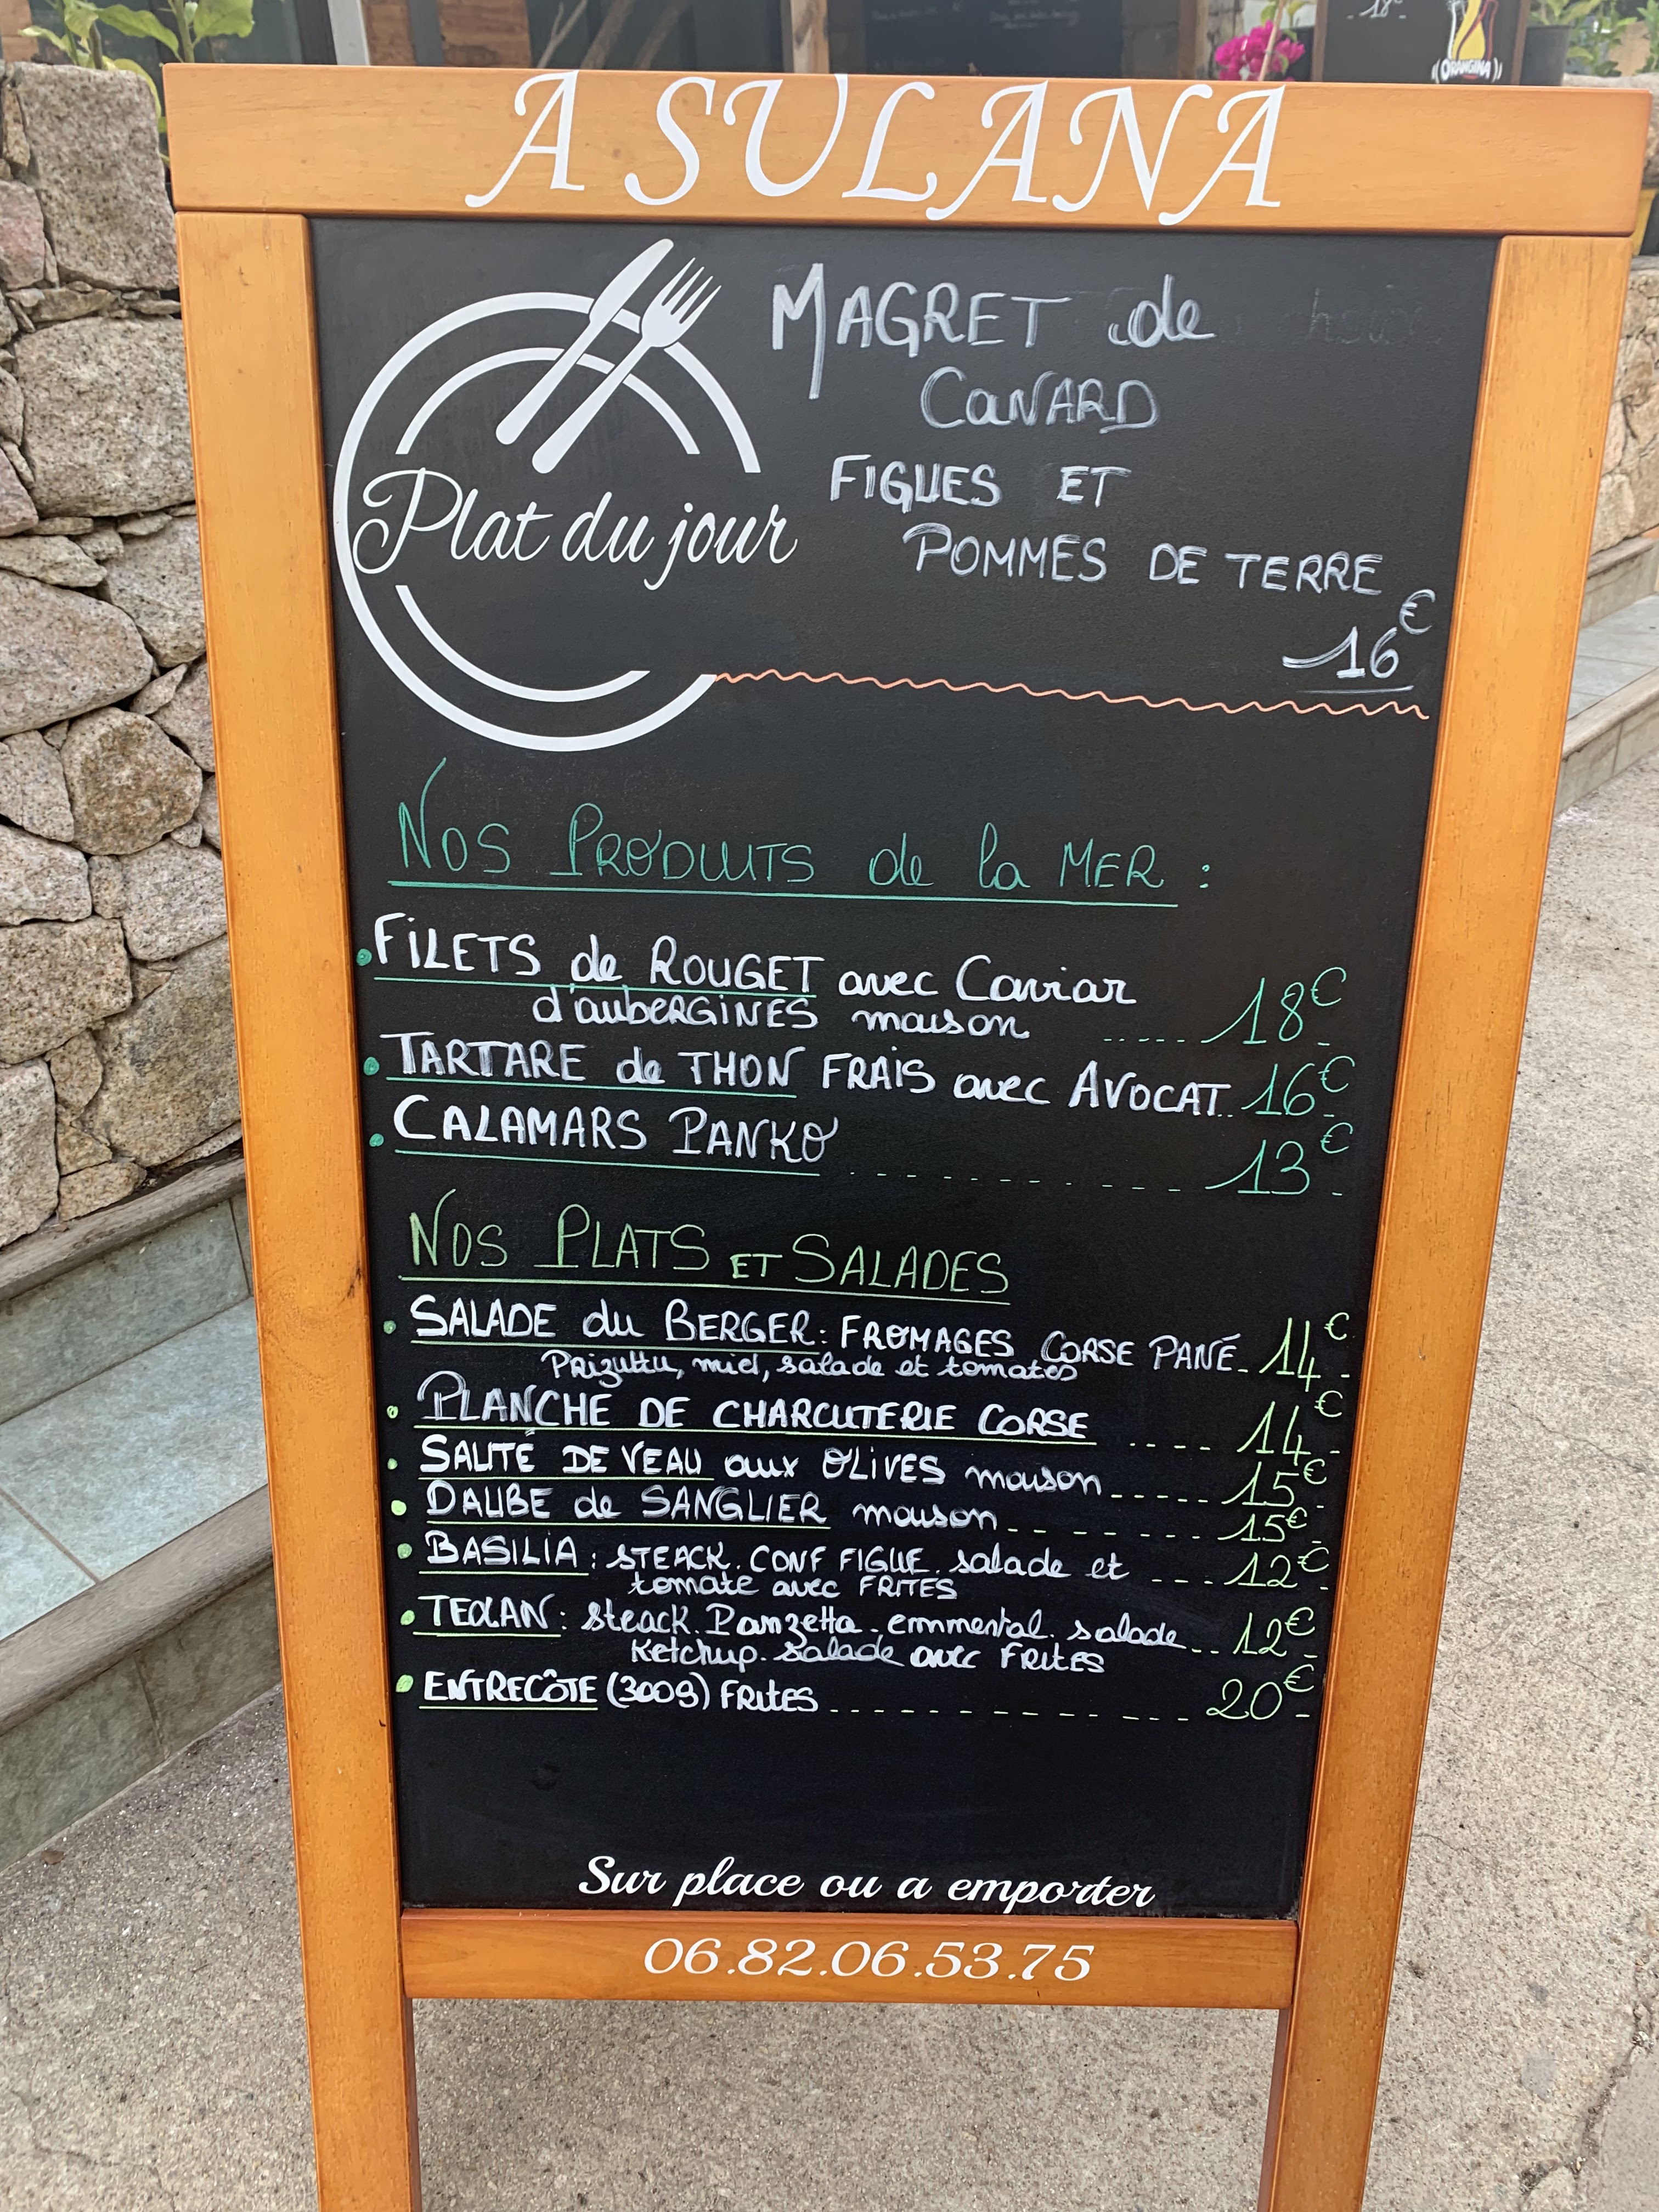 ORANGINA
A SULANA
Plat du jour
MAGRET de
CANARD
FIGUES ET
POMMES DE TERRE
16€
NOS PRODUITS de la MER :
FILETS de ROUGET avec Caviar
d'aubERGINES maison ..... 18€
TARTARE de THON FRAIS avec AVOCAT.. 16€
CALAMARS PANKO .......... 13€
NOS PLATS ET SALADES
SALADE du BERGER: FROMAGES CORSE PANÉ_ 14€
Prizuttu, miel, salade et tomates
PLANCHE DE CHARCUTERIE CORSE .... 14€
SAUTÉ DE VEAU aux OLIVES maison ----- 15€
DAUBE de SANGLIER maison -------- 15€
BASILIA : STEACK. CONF FIGUE. salade et --- 12€
tomate avec FRITES
TEOLAN : Steack. Panzetta. emmental. salade... 12€
Ketchup. Salade avec FRITES
ENTRECÔTE (300g) FRITES ------------- 20€
Sur place ou a emporter
06.82.06.53.75